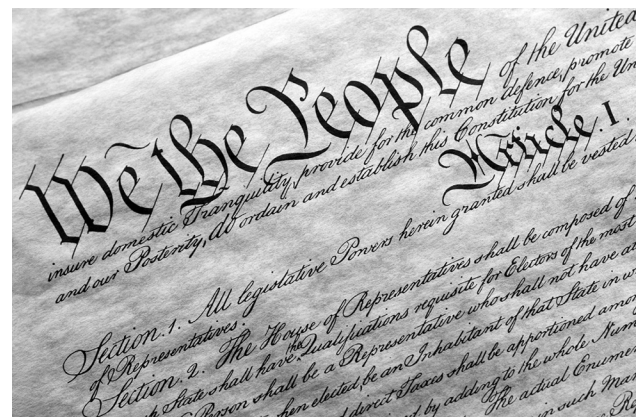 We the People of the United
insure domestic Tranquility, provide for the common defence, promote
and our Posterity, do ordain and establish this Constitution for the Un
Article. I.
Section. 1. All legislative Powers herein granted shall be vested
of Representatives.
Section. 2. The House of Representatives shall be composed of
State shall have the Qualifications requisite for Electors of the most
Person shall be a Representative who shall not have
when elected, be an Inhabitant of that State in
direct Taxes shall be apportioned
by adding to the whole Num
The actual Enume
in such Man